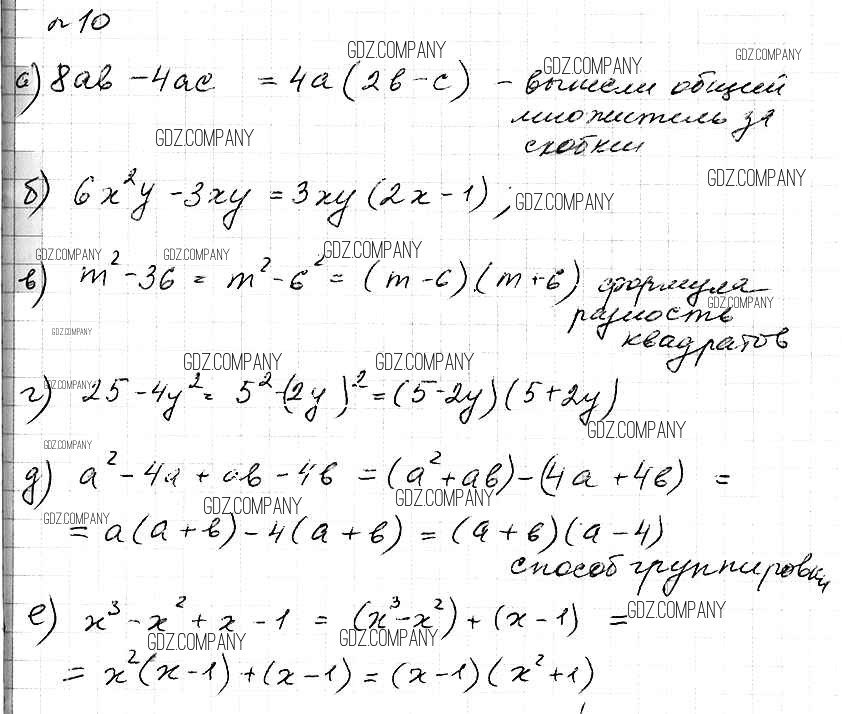 № 10
GDZ.COMPANY GDZ.COMPANY
а) 8ab - 4ac = 4a(2b - c) - вынесли общий
GDZ.COMPANY
множитель за
GDZ.COMPANY
скобки
GDZ.COMPANY
б) 6x²y - 3xy = 3xy(2x - 1);
GDZ.COMPANY
GDZ.COMPANY GDZ.COMPANY GDZ.COMPANY
в) m² - 36 = m² - 6² = (m - 6)(m + 6) формула
GDZ.COMPANY
разность
GDZ.COMPANY
квадратов
GDZ.COMPANY GDZ.COMPANY
GDZ.COMPANY
г) 25 - 4y² = 5² - (2y)² = (5 - 2y)(5 + 2y)
GDZ.COMPANY
GDZ.COMPANY
д) a² - 4a + ab - 4b = (a² + ab) - (4a + 4b) =
GDZ.COMPANY GDZ.COMPANY GDZ.COMPANY
= a(a + b) - 4(a + b) = (a + b)(a - 4)
способ группировки
е) x³ - x² + x - 1 = (x³ - x²) + (x - 1) =
GDZ.COMPANY
GDZ.COMPANY GDZ.COMPANY
= x²(x - 1) + (x - 1) = (x - 1)(x² + 1)